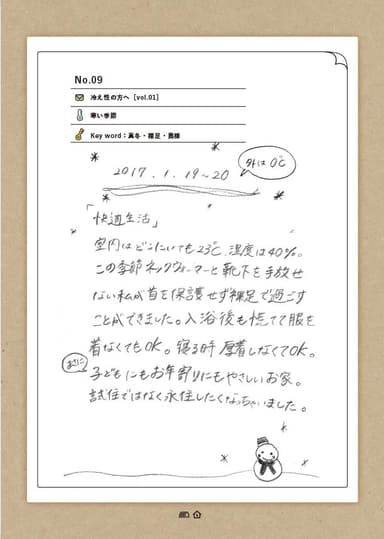 No.09
冷え性の方へ [vol.01]
寒い季節
Key word：真冬・裸足・黒猫
2017.1.19~20
外は0℃
「快適生活」
室内はどこにいても23℃、湿度は40%。
この季節ネックウォーマーと靴下を手放せ
ない私が首を保護せず裸足で過ごす
ことができました。入浴後も慌てて服を
着なくてもOK。寝る時厚着しなくてOK。
おまけに
子どもにもお年寄りにもやさしいお家。
試住ではなく永住したくなっちゃいました。